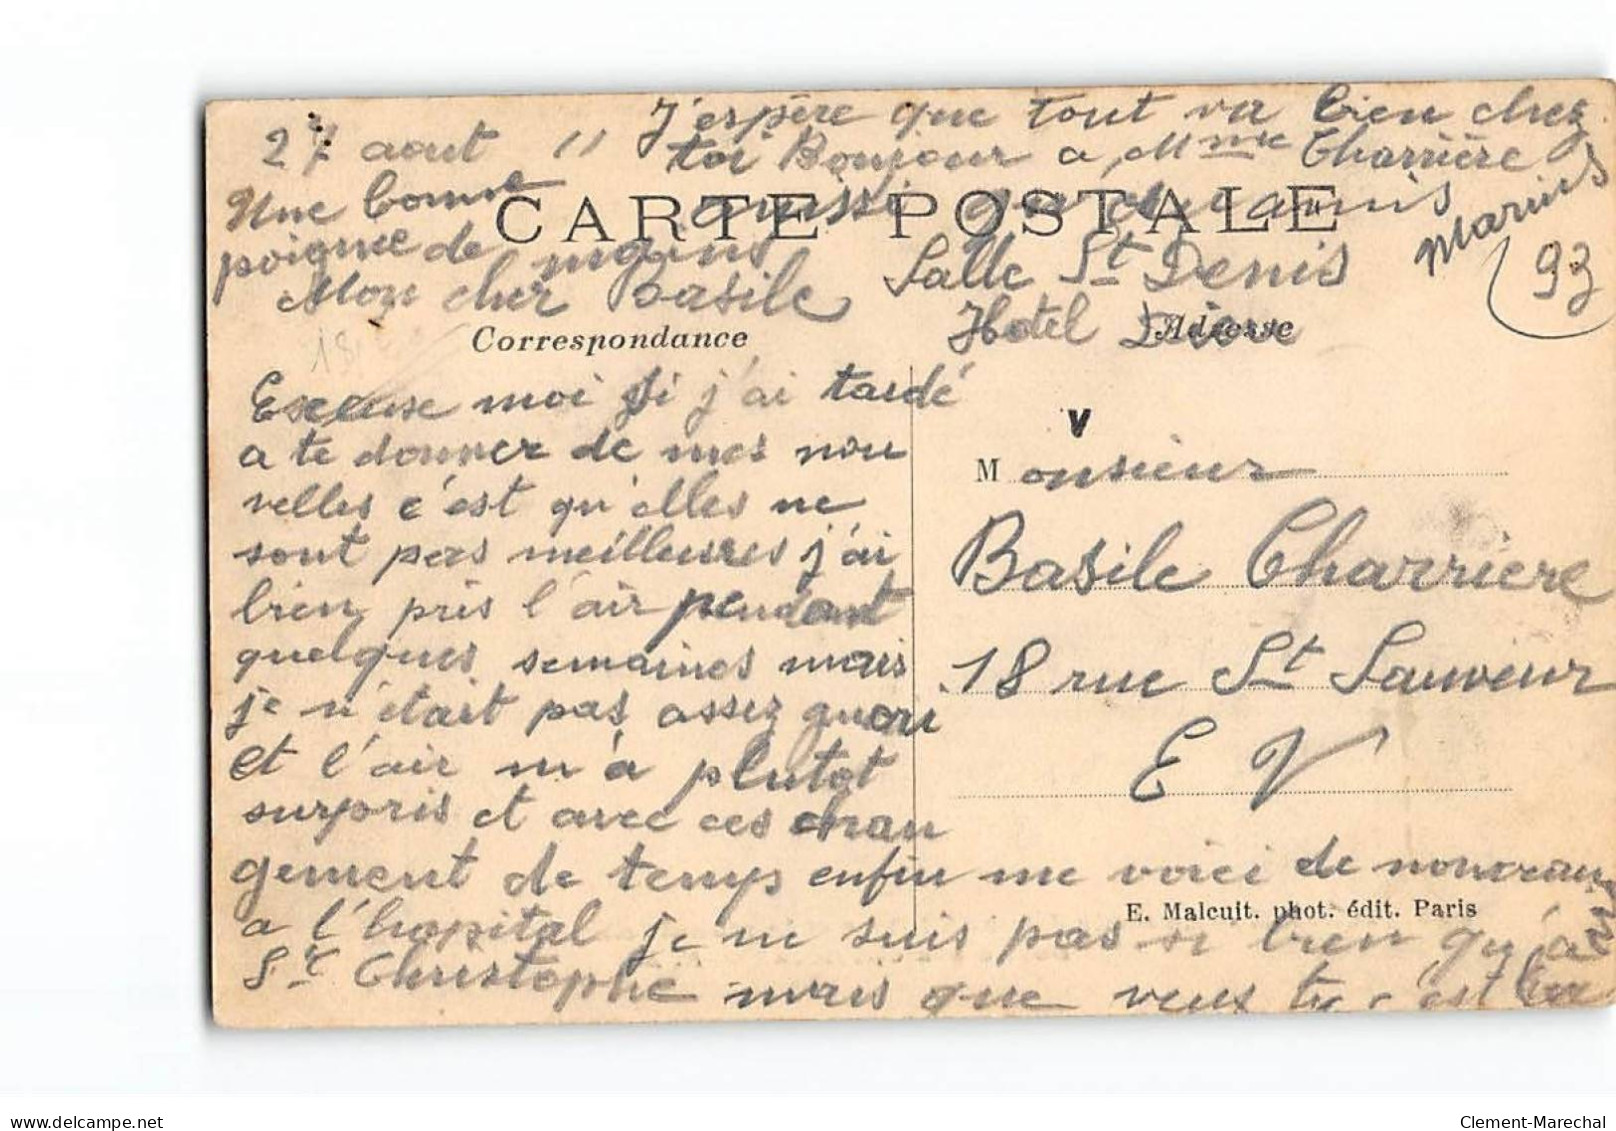 27 aout 11
J'espère que tout va bien chez
toi Bonjour a Mme Charrière
aussi
Une bonne
poignee de mains
Marius
93
CARTE POSTALE
Mon cher Basile
Salle St Denis
Hotel Dieu
Correspondance
Adresse
18
Excuse moi si j'ai tardé
a te donner de mes nou
velles c'est qu'elles ne
sont pas meilleures j'ai
bien pris l'air pendant
quelques semaines mais
je n'était pas assez gueri
et l'air m'a plutot
surpris et avec ces chan
gement de temps enfin me voici de nouveau
a l'hopital je ne suis pas si bien qu'a
St Christophe mais que veux tu c'est
V
Monsieur
Basile Charriere
18 rue St Sauveur
E V
E. Malcuit. phot. édit. Paris
delcampe.net
Clement-Marechal